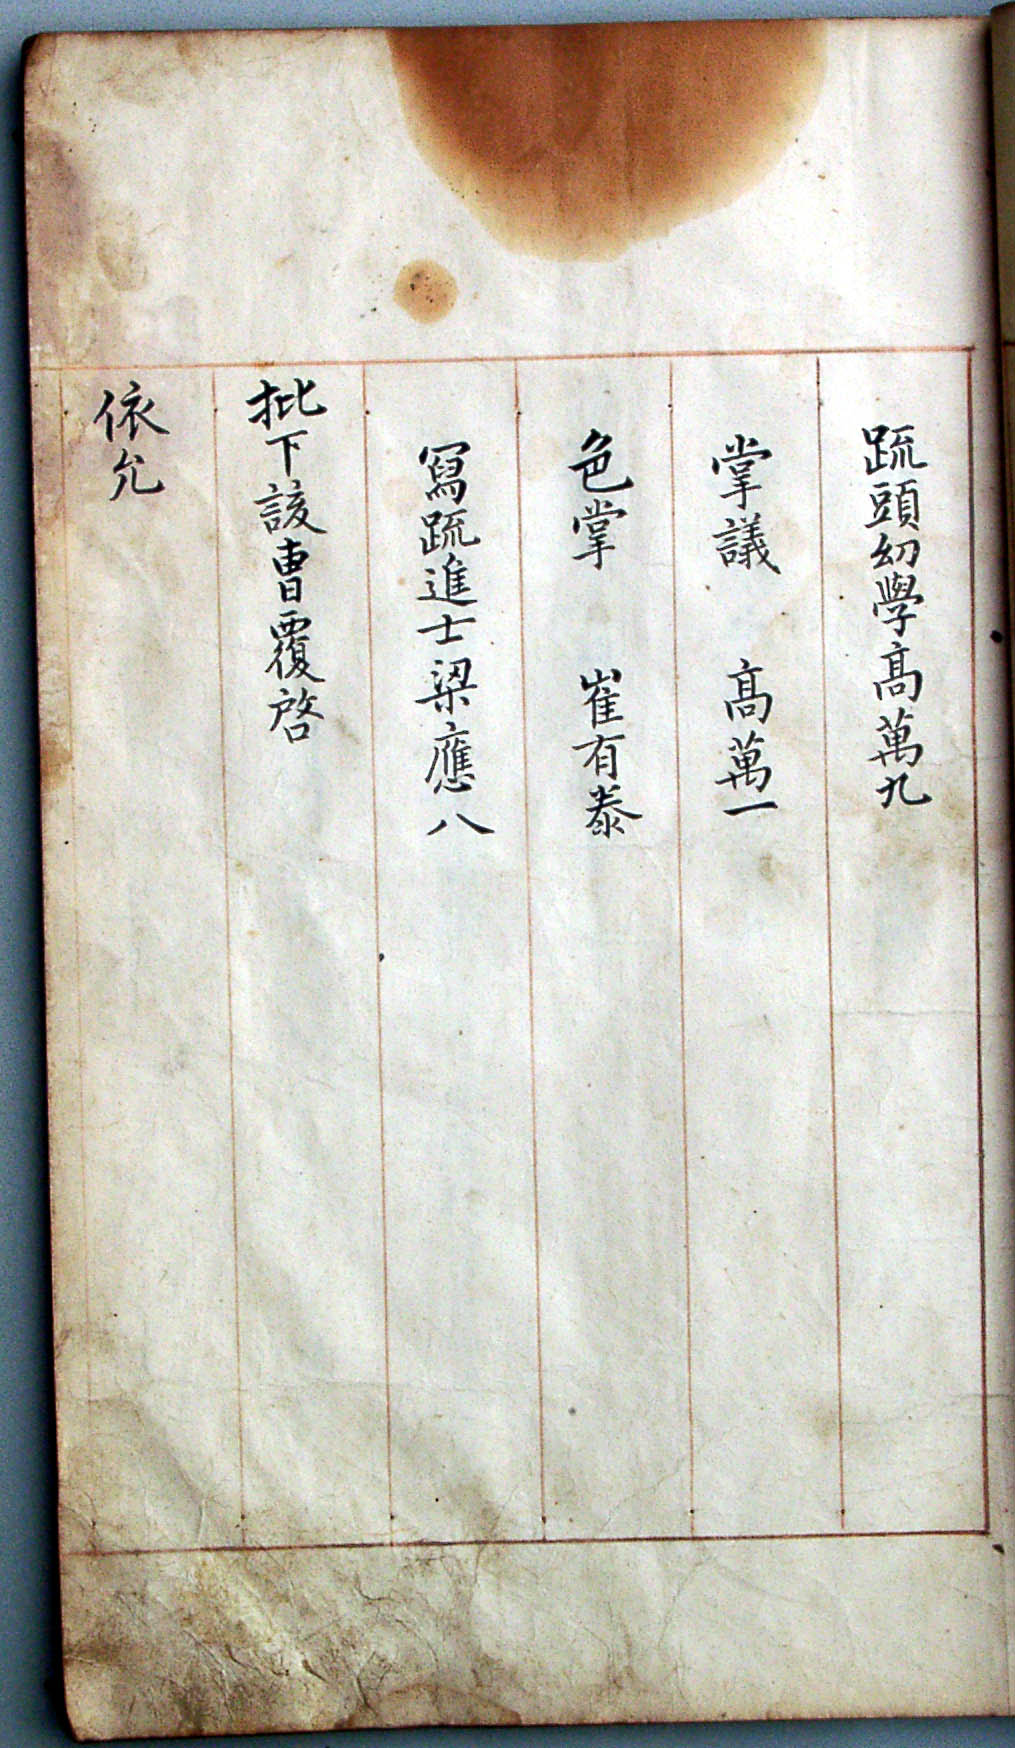 疏頭幼學高萬九
掌議 高萬一
色掌 崔有泰
寫疏進士梁應八
批下該曹覆啓
依允